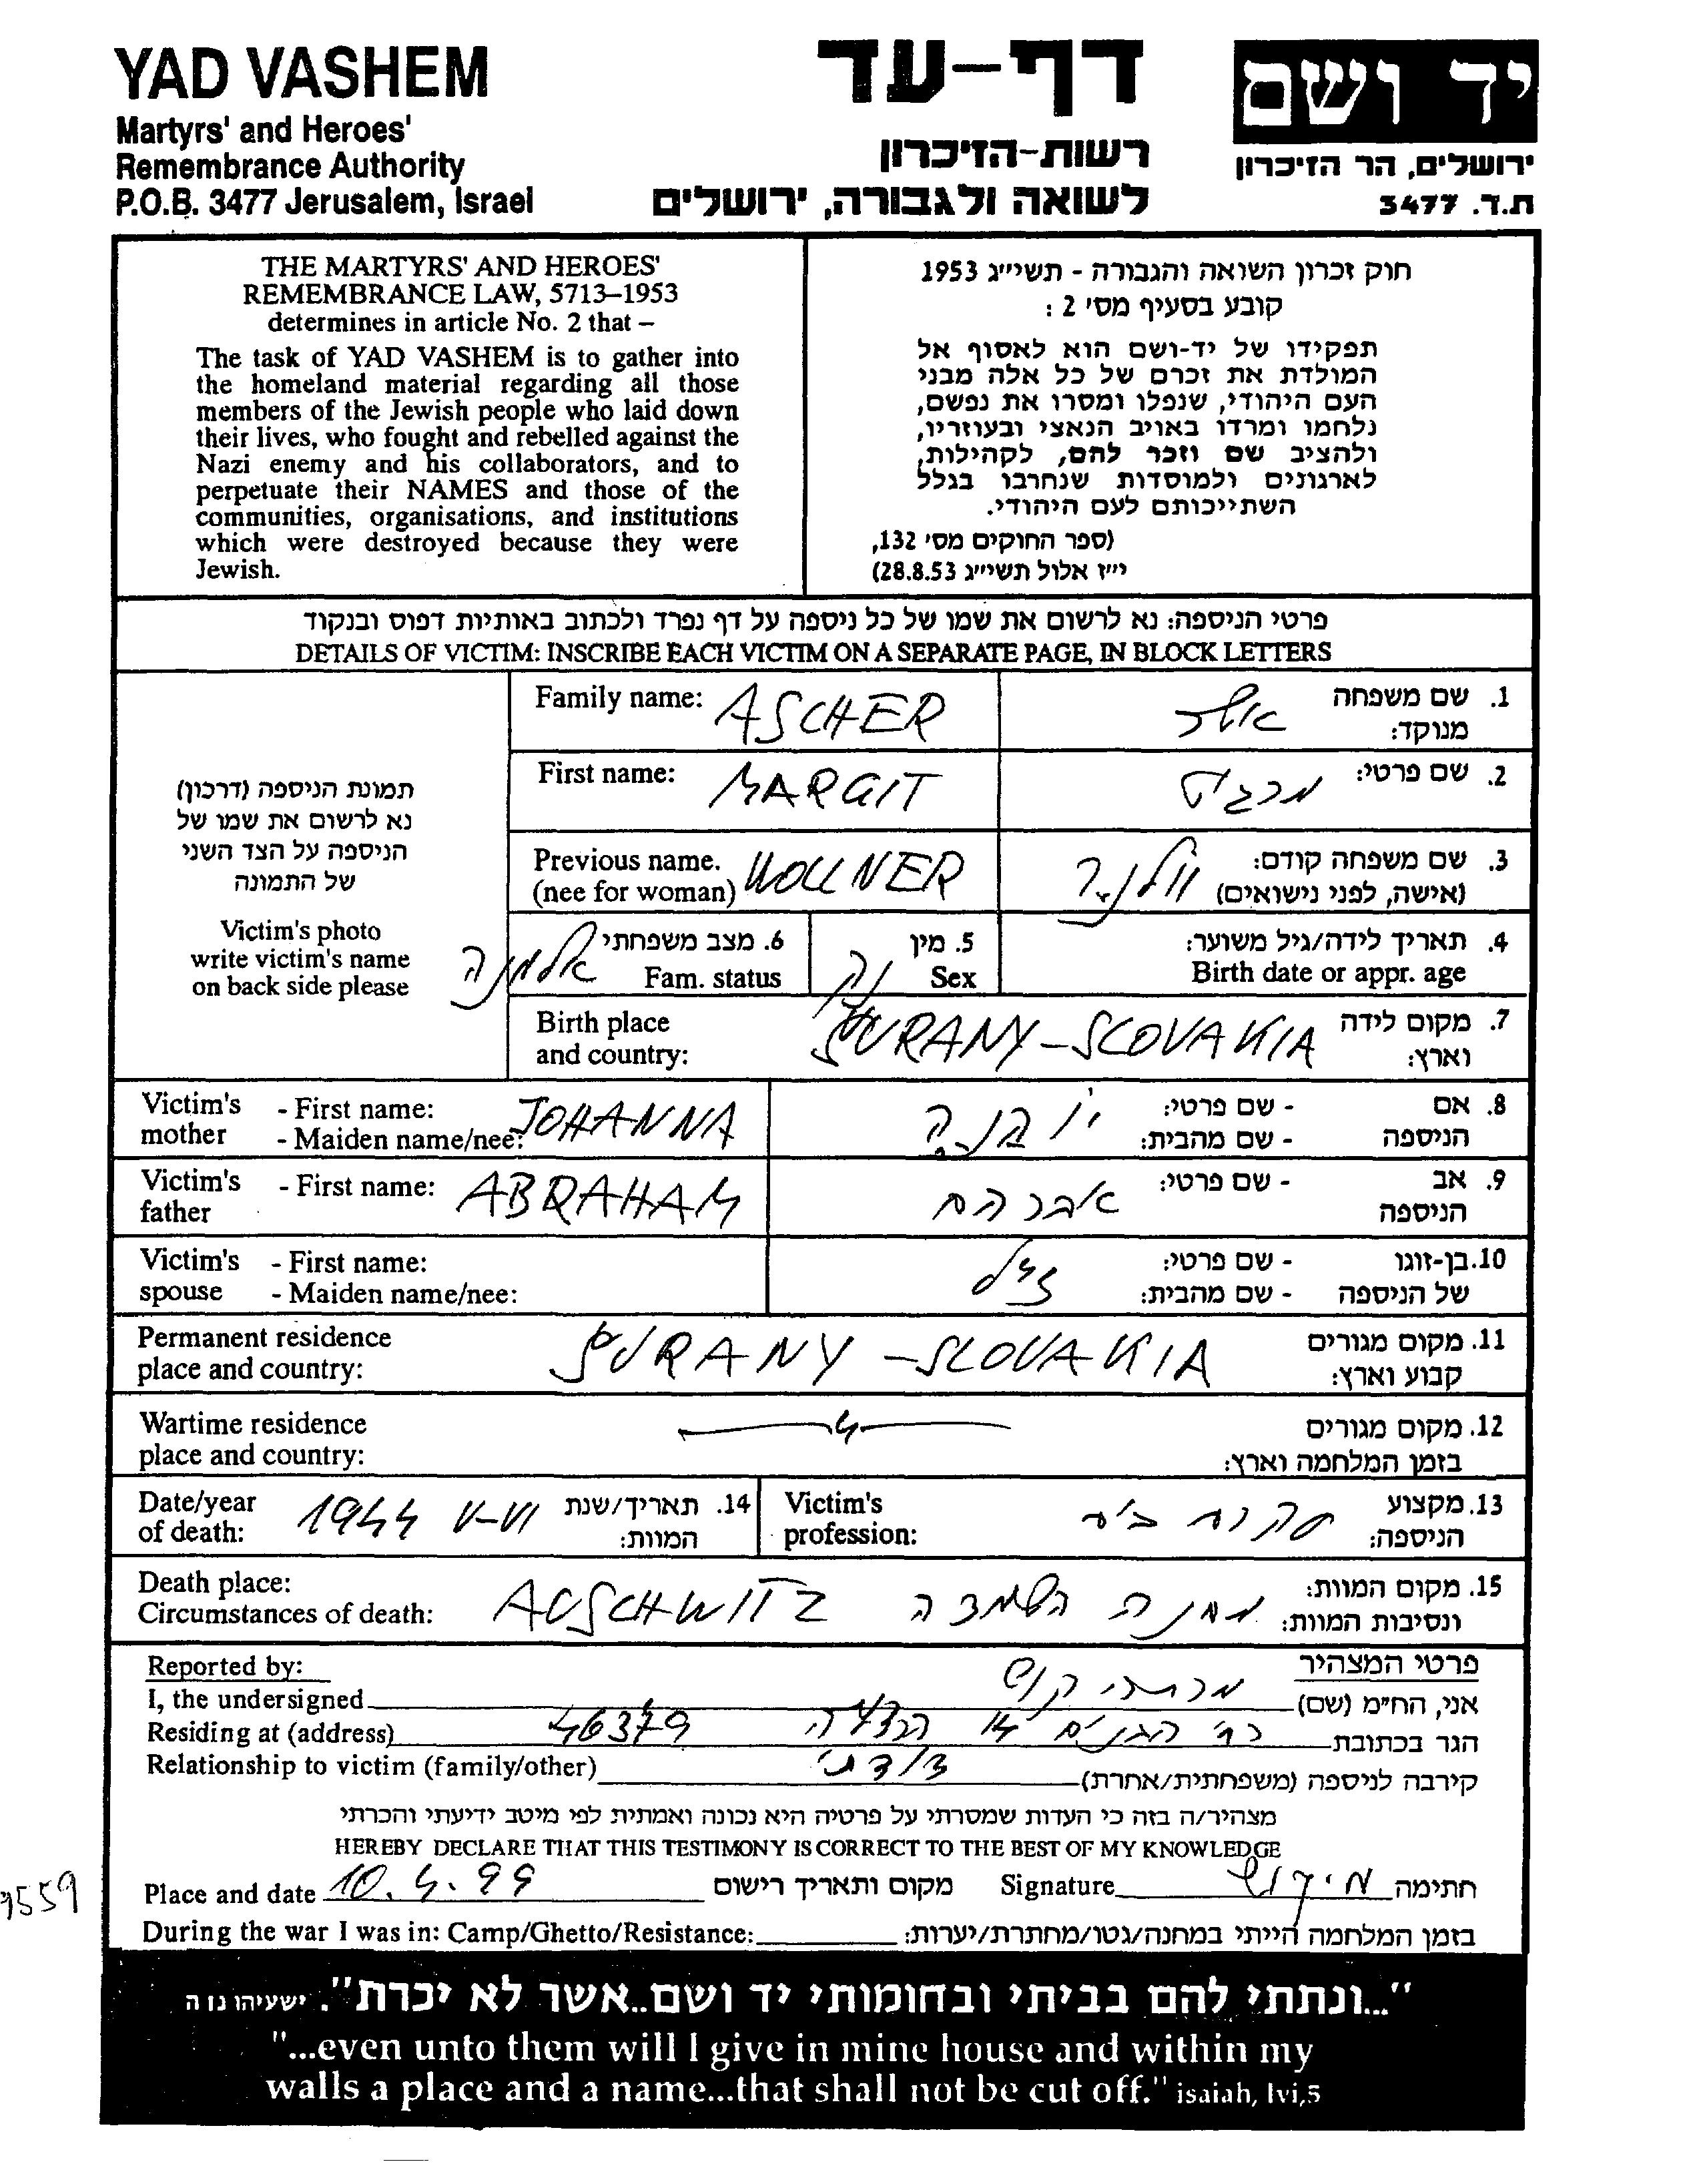 YAD VASHEM
Martyrs' and Heroes'
Remembrance Authority
P.O.B. 3477 Jerusalem, Israel
דף-עד
רשות-הזיכרון
לשואה ולגבורה, ירושלים
יד ושם
ירושלים, הר הזיכרון
ת.ד. 3477
THE MARTYRS' AND HEROES'
REMEMBRANCE LAW, 5713–1953
determines in article No. 2 that –
The task of YAD VASHEM is to gather into
the homeland material regarding all those
members of the Jewish people who laid down
their lives, who fought and rebelled against the
Nazi enemy and his collaborators, and to
perpetuate their NAMES and those of the
communities, organisations, and institutions
which were destroyed because they were
Jewish.
חוק זכרון השואה והגבורה - תשי״ג 1953
קובע בסעיף מס׳ 2 :
תפקידו של יד-ושם הוא לאסוף אל
המולדת את זכרם של כל אלה מבני
העם היהודי, שנפלו ומסרו את נפשם,
נלחמו ומרדו באויב הנאצי ובעוזריו,
ולהציב שם וזכר להם, לקהילות,
לארגונים ולמוסדות שנחרבו בגלל
השתייכותם לעם היהודי.
(ספר החוקים מס׳ 132,
י״ז אלול תשי״ג 28.8.53)
פרטי הניספה: נא לרשום את שמו של כל ניספה על דף נפרד ולכתוב באותיות דפוס ובנקוד
DETAILS OF VICTIM: INSCRIBE EACH VICTIM ON A SEPARATE PAGE, IN BLOCK LETTERS
תמונת הניספה (דרכון)
נא לרשום את שמו של
הניספה על הצד השני
של התמונה
Victim's photo
write victim's name
on back side please
Family name: ASCHER
1. שם משפחה אשר
מנוקד:
First name: MARGIT
2. שם פרטי: מרגיט
Previous name. WOLLNER
(nee for woman)
3. שם משפחה קודם: וולנר
(אישה, לפני נישואים)
6. מצב משפחתי אלמנה
Fam. status
5. מין נק
Sex
4. תאריך לידה/גיל משוער:
Birth date or appr. age
Birth place
and country: ŠURANY-SLOVAKIA
7. מקום לידה
וארץ:
Victim's mother - First name: JOHANNA
- Maiden name/nee:
8. אם הניספה - שם פרטי: יוהנה
- שם מהבית:
Victim's father - First name: ABRAHAM
9. אב הניספה - שם פרטי: אברהם
Victim's spouse - First name:
- Maiden name/nee:
10. בן-זוגו של הניספה - שם פרטי:
- שם מהבית:
Permanent residence
place and country: ŠURANY-SLOVAKIA
11. מקום מגורים
קבוע וארץ:
Wartime residence
place and country:
12. מקום מגורים
בזמן המלחמה וארץ:
Date/year
of death: 1944 V-VI
14. תאריך/שנת
המוות:
Victim's
profession:
13. מקצוע
הניספה: עקרת בית
Death place:
Circumstances of death: AUSCHWITZ
15. מקום המוות: מחנה השמדה
ונסיבות המוות:
Reported by:
פרטי המצהיר
I, the undersigned
אני, הח״מ (שם) מרדכי קוש
Residing at (address)
הגר בכתובת 14 הרצליה 46379
Relationship to victim (family/other)
קירבה לניספה (משפחתית/אחרת)
מצהיר/ה בזה כי העדות שמסרתי על פרטיה היא נכונה ואמתית לפי מיטב ידיעתי והכרתי
HEREBY DECLARE THAT THIS TESTIMONY IS CORRECT TO THE BEST OF MY KNOWLEDGE
Place and date 10.4.99 מקום ותאריך רישום
Signature חתימה
During the war I was in: Camp/Ghetto/Resistance:
בזמן המלחמה הייתי במחנה/גטו/מחתרת/יערות:
9559
"...ונתתי להם בביתי ובחומותי יד ושם..אשר לא יכרת". ישעיהו נו ה
"...even unto them will I give in mine house and within my
walls a place and a name...that shall not be cut off." isaiah, lvi,5